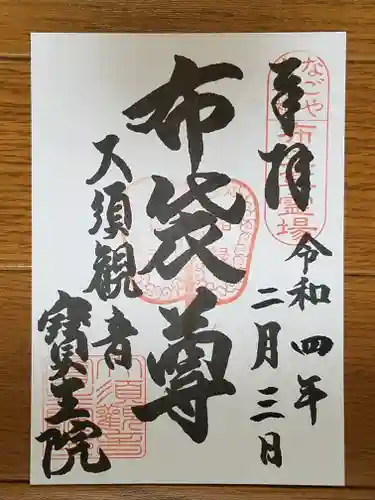 奉拝
令和四年
二月三日
布袋尊
大須観音
寳生院
なごや
霊場
大須観音